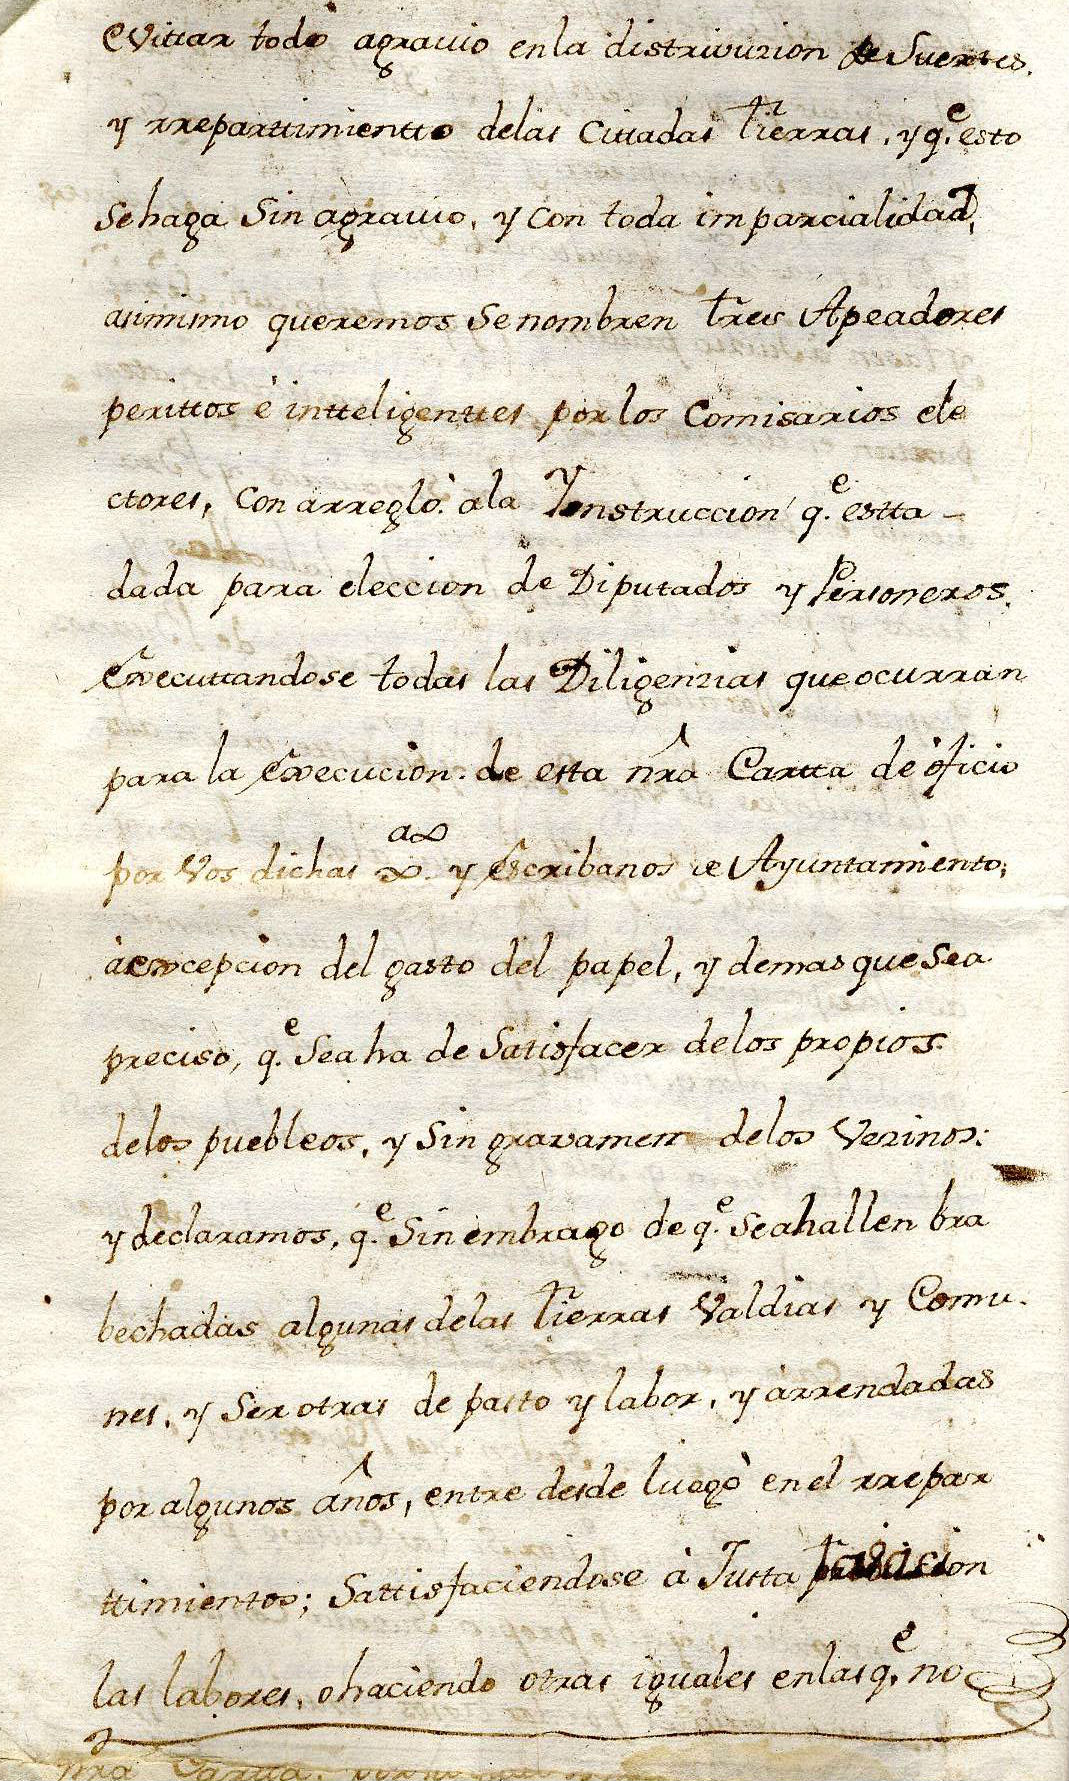 evittar todo agrauio enla distriuuzion de Suertes.
y rrepartimientto delas Cittadas tierras, y q.e esto
sehaga Sin agrauio, y con toda imparcialidad,
asimismo queremos Senombren tres Apeadores
perittos è intteligenttes por los Comisarios ele
ctores, con arreglò ala Ynstruccion q.e estta -
dada para eleccion de Diputados y Personeros.
Executtandose todas las Diligenzias que ocurran
para la Execucion de esta nrâ Cartta de òficio
por Vos dichas
y Escribanos de Ayuntamiento,
àexcepcion del gasto del papel, y demas que Sea
preciso, q.e Sea ha de Satisfacer delos propios
delos puebleos, y Sin gravamen delos Vezinos:
y declaramos, q.e Sin embrago de q.e Seahallen bra
bechadas algunas delas tierras Valdias y Comu-
nes, y Ser otras de pasto y labor, y àrrendadas
por algunos años, entre desde luegò en el rrepar
ttimientos; Sattisfaciendose à Justa
las labores, o haciendo otras iguales enlas q.e no
nrâ Cartta,